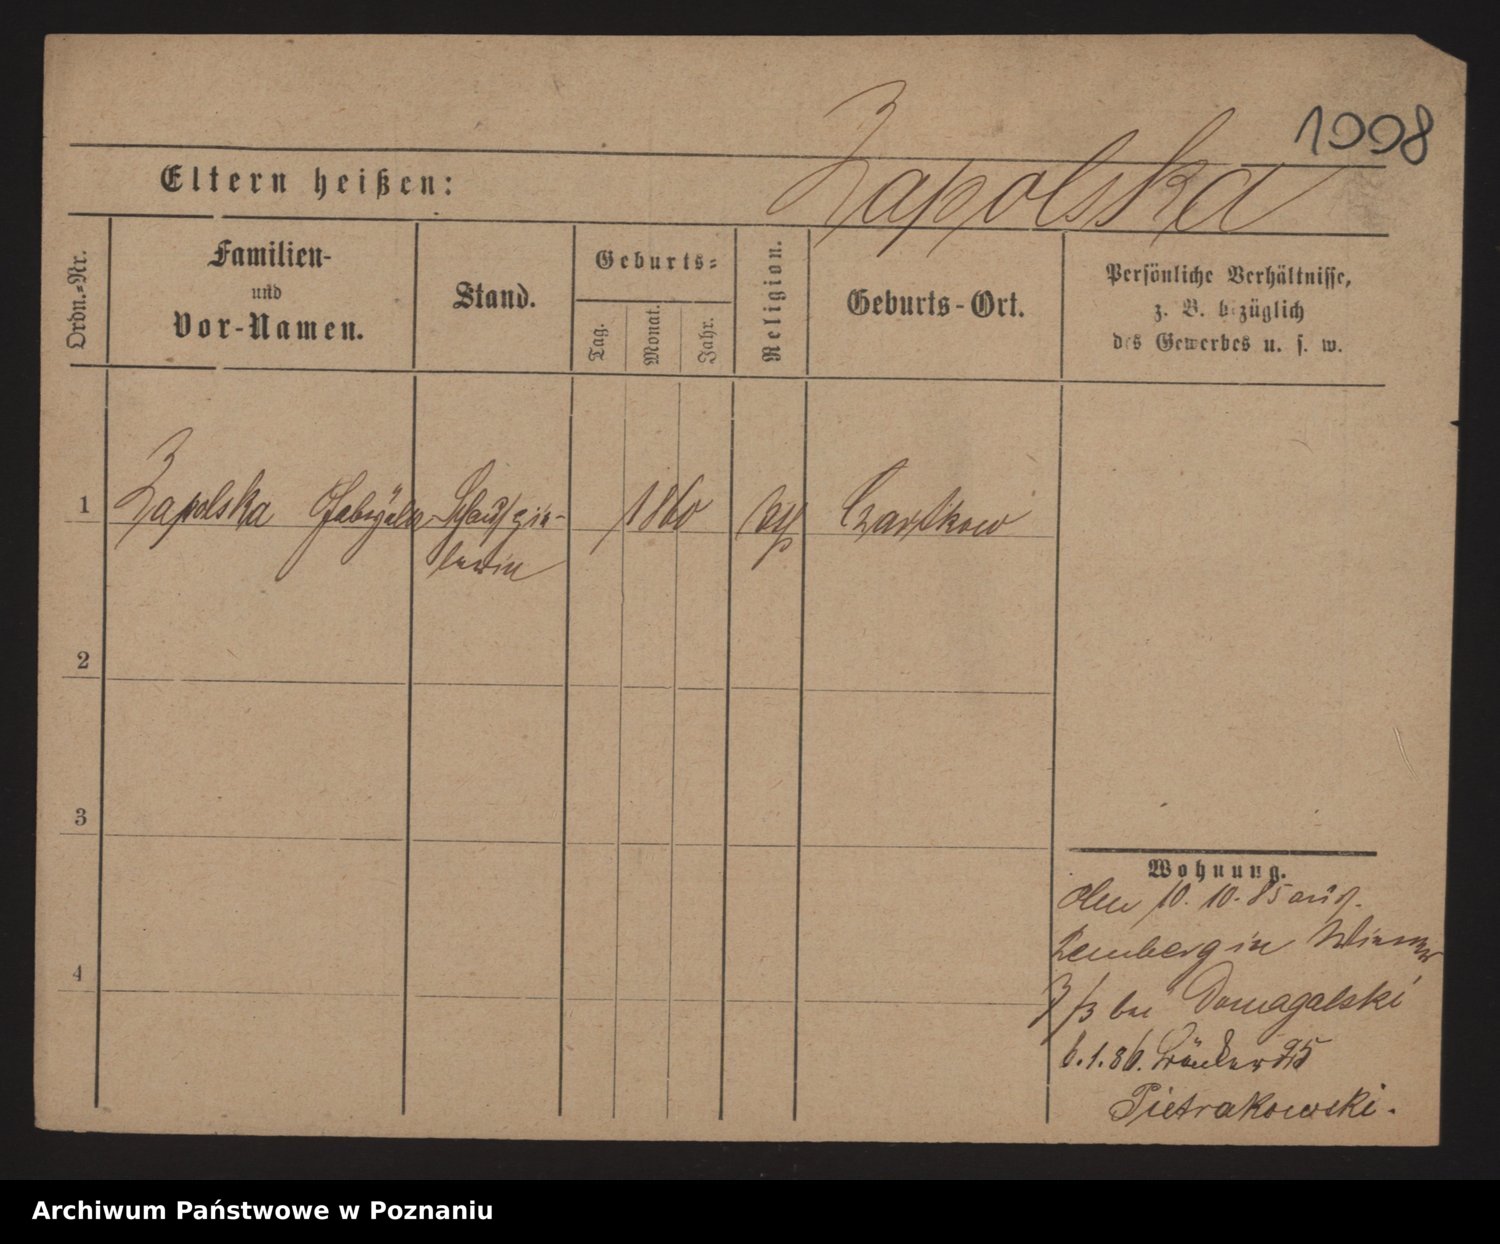 1998
Zapolska
Eltern heißen:
Ordn.-Nr.
Familien-
und
Vor-Namen.
Stand.
Geburts-
Tag.
Monat.
Jahr.
Religion.
Geburts-Ort.
Persönliche Verhältnisse,
z. B. bezüglich
des Gewerbes u. s. w.
1 Zapolska Gabryela Schauspie- 1860 Czartkow
lerin
2
3
4
Wohnung.
den 10. 10. 85 aus
Lemberg in Wiener
7/3 bei Domagalski
6.1.86. 25
Pietrakowski.
Archiwum Państwowe w Poznaniu